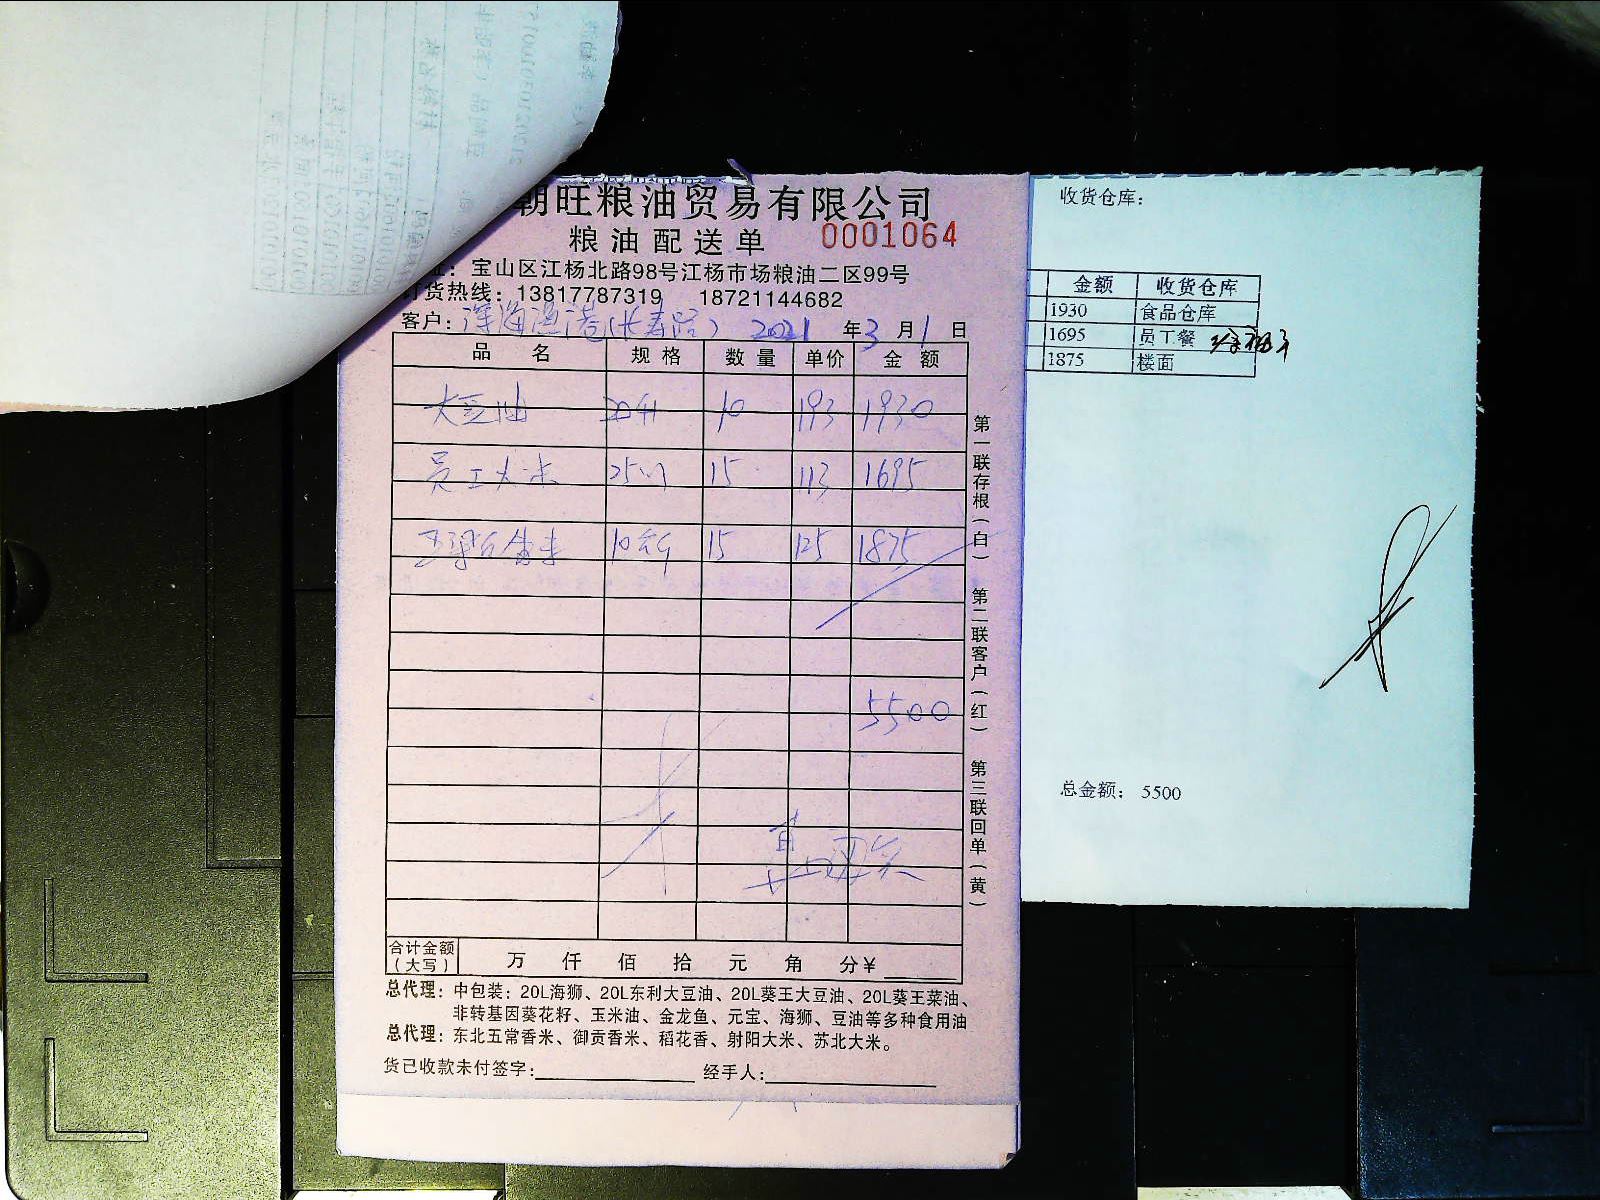 朝旺粮油贸易有限公司
粮油配送单 0001064
址：宝山区江杨北路98号江杨市场粮油二区99号
订货热线：13817787319 18721144682
客户：深海渔港(长寿路) 2021年3月1日
品名 规格 数量 单价 金额
大豆油 20升 10 193 1930
员工大米 25 15 113 1695
10公斤 15 125 1875
5500
合计金额（大写） 万 仟 佰 拾 元 角 分¥
总代理：中包装：20L海狮、20L东利大豆油、20L葵王大豆油、20L葵王菜油、
非转基因葵花籽、玉米油、金龙鱼、元宝、海狮、豆油等多种食用油
总代理：东北五常香米、御贡香米、稻花香、射阳大米、苏北大米。
货已收款未付签字： 经手人：
第一联存根（白） 第二联客户（红） 第三联回单（黄）
收货仓库：
金额 收货仓库
1930 食品仓库
1695 员工餐
1875 楼面
总金额： 5500